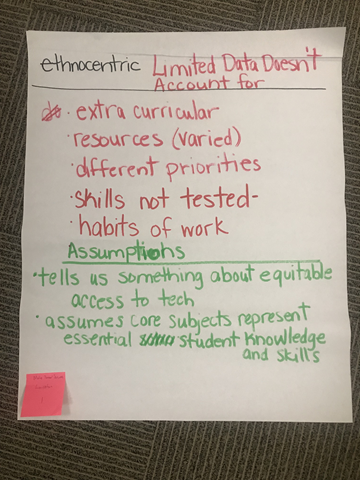 ethnocentric Limited Data Doesn't
Account for
· extra curricular
· resources (varied)
· different priorities
· skills not tested-
· habits of work
Assumptions
· tells us something about equitable
access to tech
· assumes core subjects represent
essential student knowledge
and skills